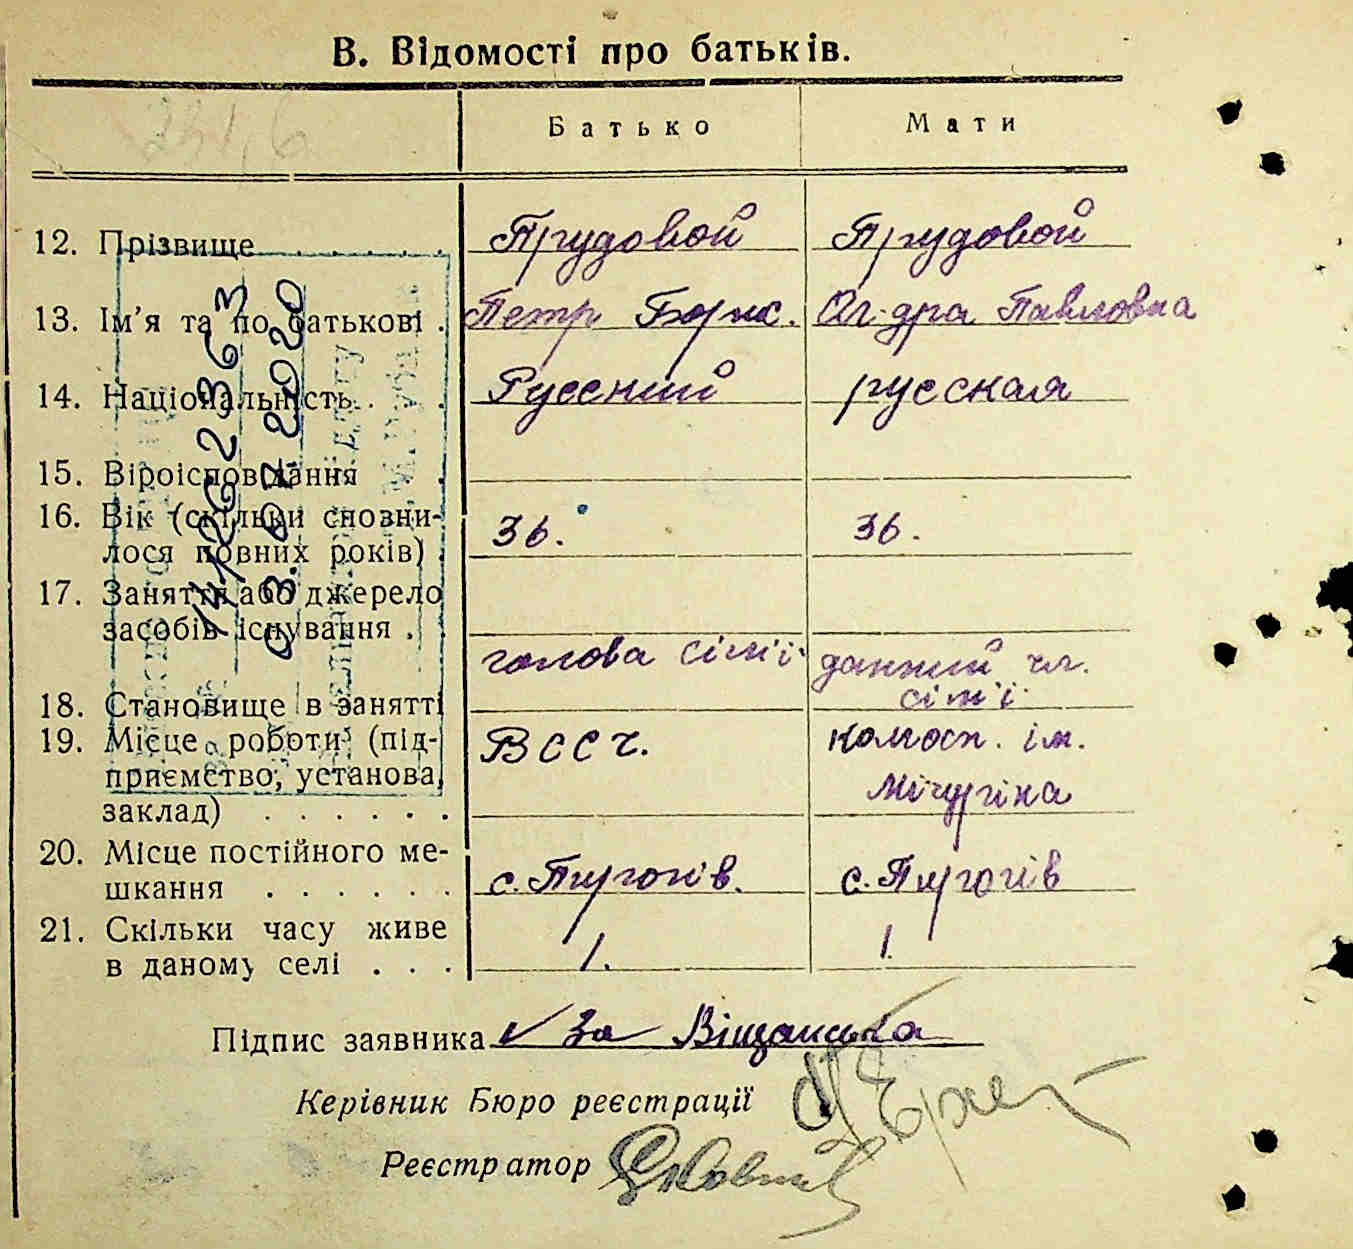 В. Відомості про батьків.
231,6
Батько Мати
12. Прізвище . . . . . Прудовой Прудовой
13. Ім'я та по батькові . Петр Борис. Ал-дра Павловна
14. Національність . . . Русский русская
15. Віроісповідання . .
16. Вік (скільки сповни-
лося повних років) . 36. 36.
17. Заняття або джерело
засобів існування . .
голова сім'ї данний чл.
сім'ї
18. Становище в занятті
19. Місце роботи (під- ВССч. колгосп. ім.
приємство, установа, Мічуріна
заклад) . . . . . .
20. Місце постійного ме-
шкання . . . . . . с. Пирогів. с. Пирогів
21. Скільки часу живе
в даному селі . . . 1. 1.
Підпис заявника За Віщанська
Керівник Бюро реєстрації
Реєстратор
03.07 2020